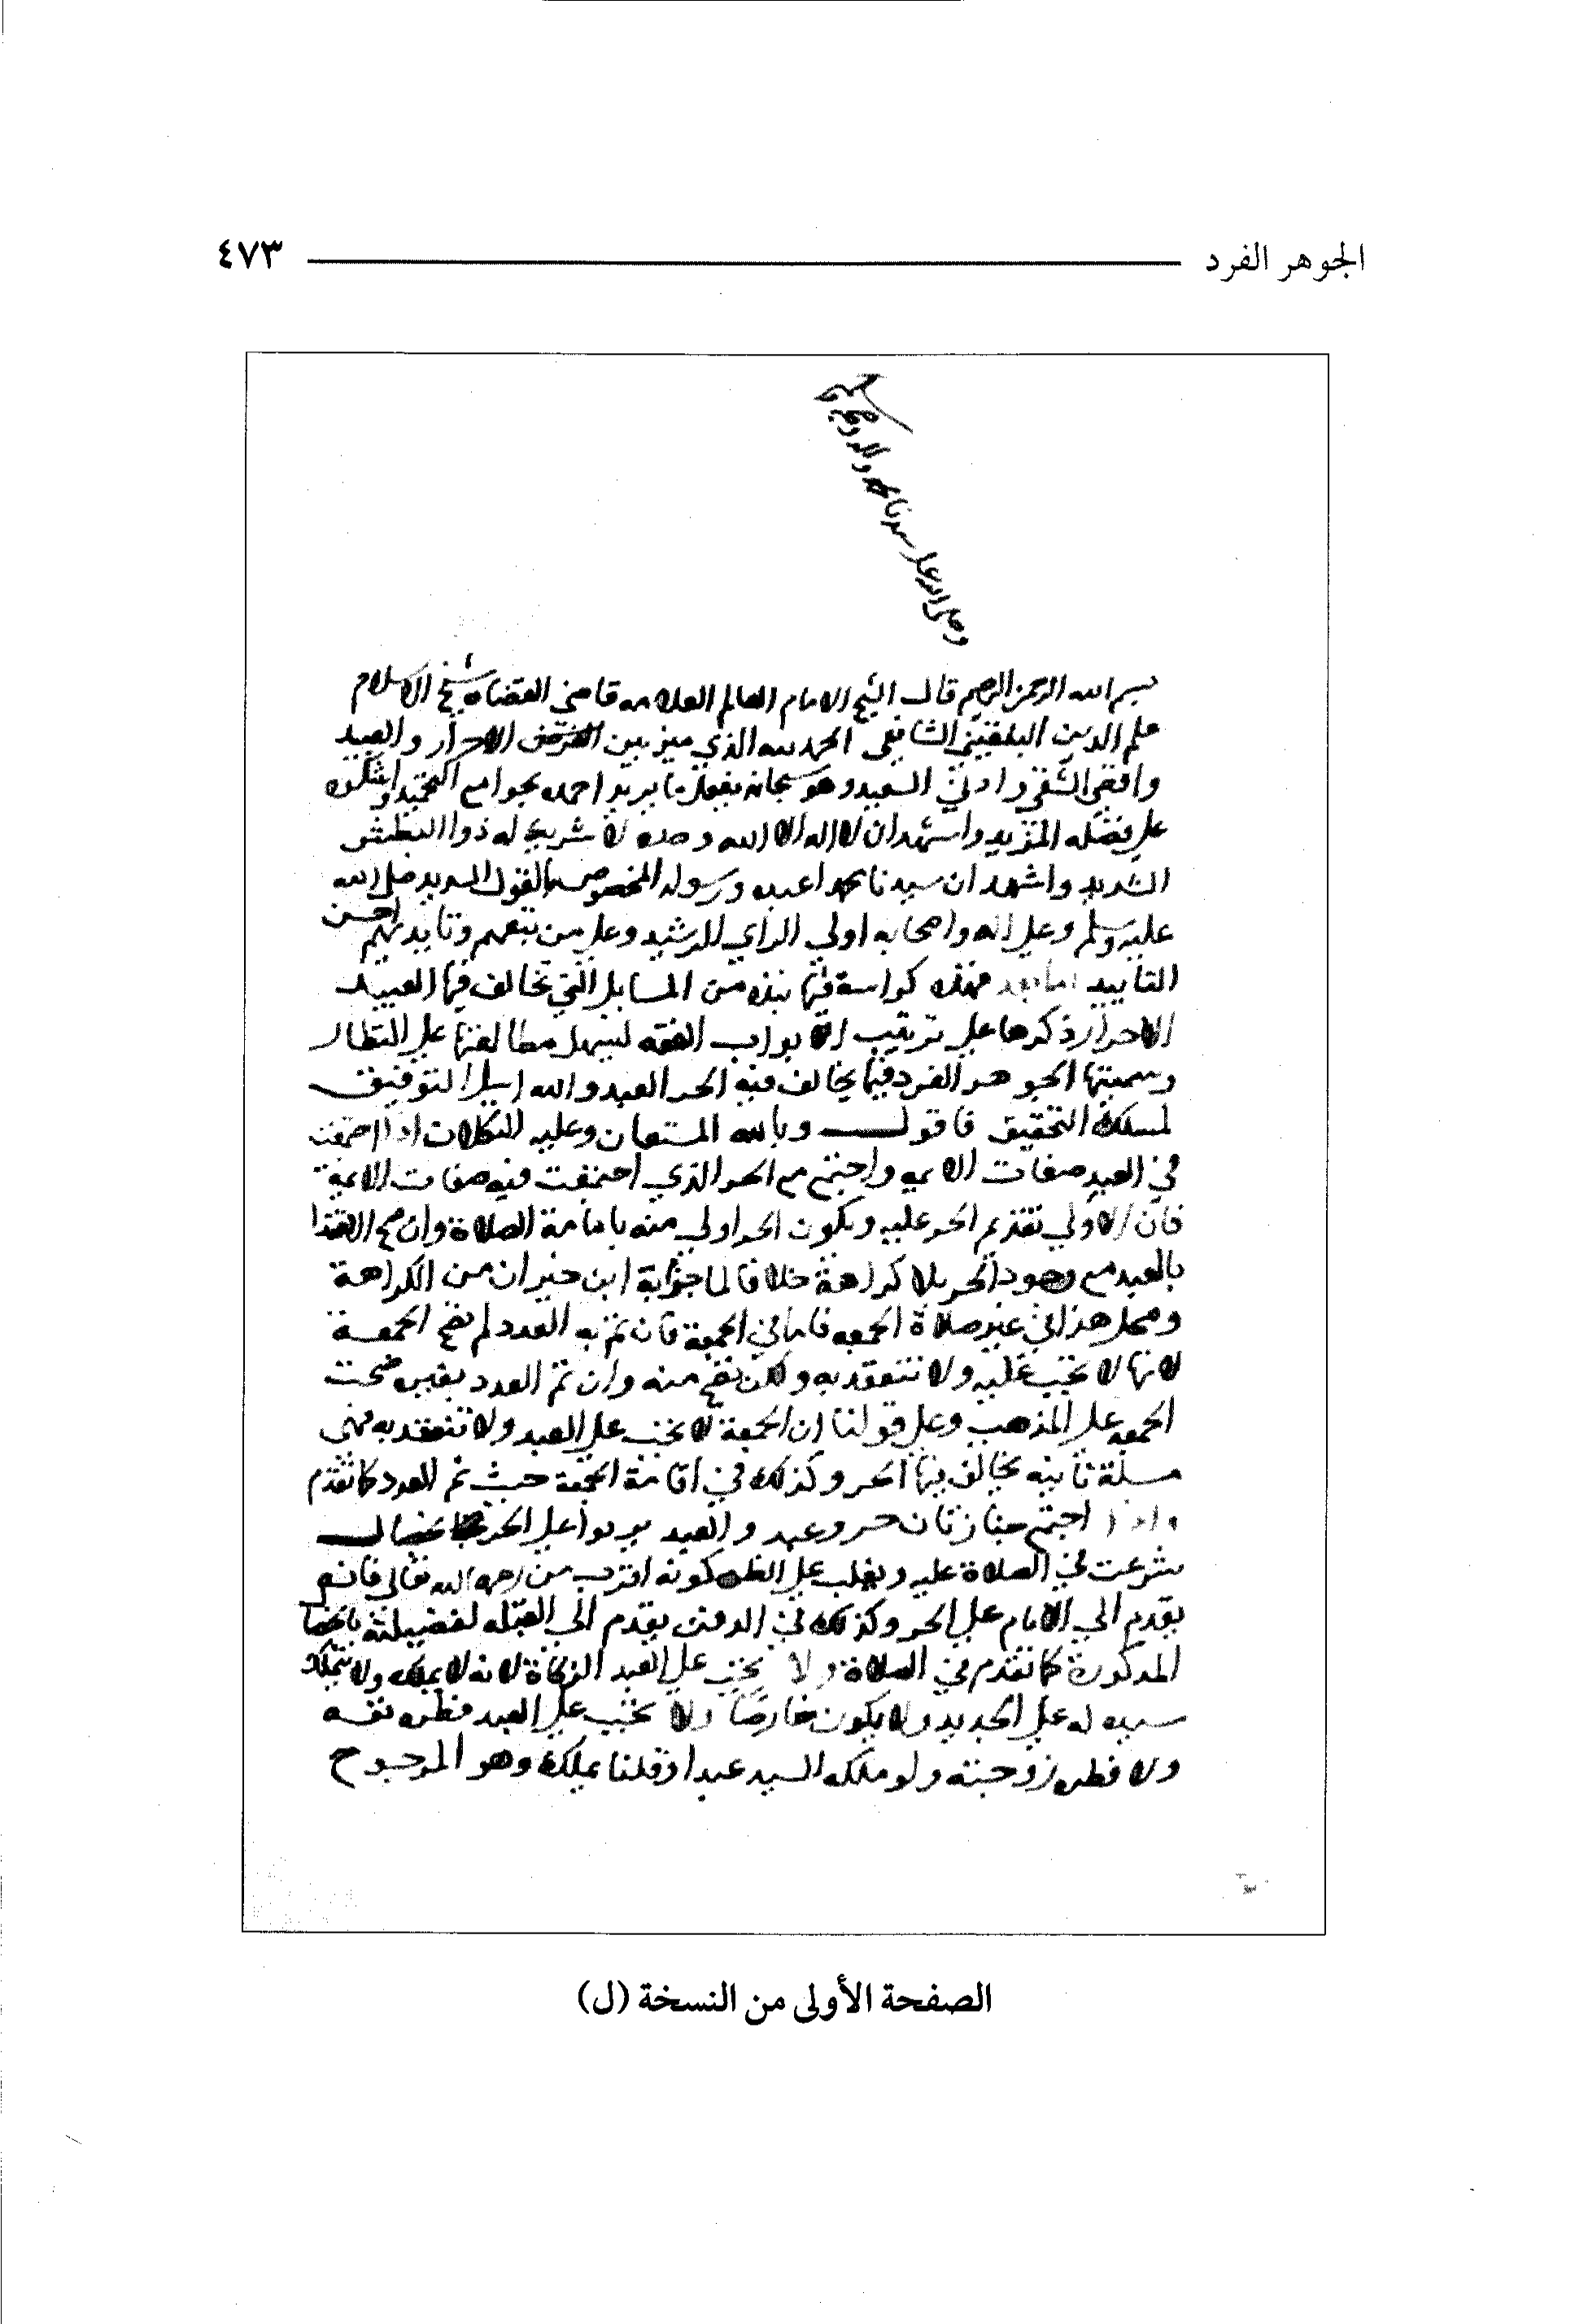 الجوهر الفرد ٤٧٣
وصلى الله على سيدنا محمد واله وصحبه
بسم الله الرحمن الرحيم قال الشيخ الامام العالم العلامه قاضي القضاه شيخ الاسلام
علم الدين البلقيني الشافعي الحمد لله الذي ميز بين الاحرار والعبيد
واقصي الشقي وادني السعيد وهو سبحانه يفعل ما يريد احمده بجوامع التحميد واشكره
علي فضله المزيد واشهد ان لا اله الا الله وحده لا شريك له ذوا البطش
الشديد واشهد ان سيدنا محمدا عبده ورسوله المخصوص بالقول السديد صلى الله
عليه وسلم وعلي اله واصحابه اولي الراي الرشيد وعلي من تبعهم وتابعيهم احسن
التاييد اما بعد فهذه كراسة فيها نبذه من المسايل التي تخالف فيها العبيد
الاحرار ذكرها علي ترتيب الابواب الفقه ليسهل مطالعتها علي النظار
وسميتها الجوهر الفرد فيما يخالف فيه الحر العبد والله اسيل التوفيق
لمسلك التحقيق فاقول وبالله المستعان وعليه التكلات اذا اجتمعت
في العبد صفات الايمه واجتمع مع الحر الذي اجتمعت فيه صفات الايمة
فان الاولي تقديم الحر عليه ويكون الحر اولي منه بامامة الصلاة وان صح الاقتدا
بالعبد مع وجود الحر بلا كراهة خلافا لما ابن خيران من الكراهة
ومحل هذا في غير صلاة الجمعه فاما في الجمعة فان تم به العدد لم تصح الجمعة
لانها لا تجب عليه ولا تنعقد به ولكن تصح منه وان تم العدد بغيره صحت
الجمعه علي المذهب وعلي قولنا ان الجمعة لا تجب علي العبد ولا تنعقد به فهي
مسلة ثانيه يخالف فيها الحر وكذلك في اقامة الجمعة حيث تم العدد كما تقدم
واذا اجتمع جنازتان حر وعبد والعبد علي الحر بخصال
شرعت في الصلاة عليه ويغلب علي الظن كونه اقرب من رحمة الله تعالي فانه
يقدم الي الامام علي الحر وكذلك في الدفن يقدم الي القبله لفضيلته بالخصا
المذكورة كما تقدم في الصلاة ولا تجب علي العبد الزكاة لانه لا يملك ولا بتمليك
سيده له علي الجديد ولا يكون ولا تجب علي العبد فطره نفسه
ولا فطره زوجته ولو ملكه السيد عبدا وقلنا يملكه وهو المرجوح
الصفحة الأولى من النسخة (ل)